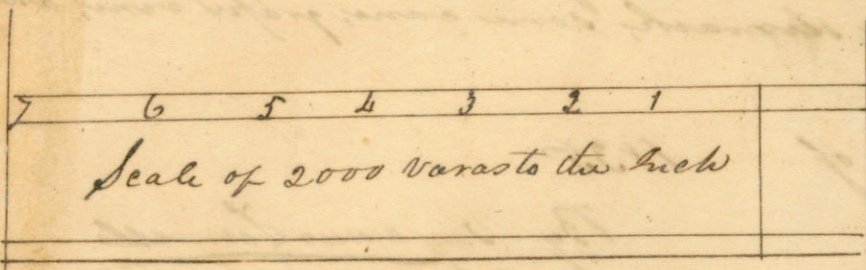 7 6 5 4 3 2 1
Scale of 2000 Varas to the Inch